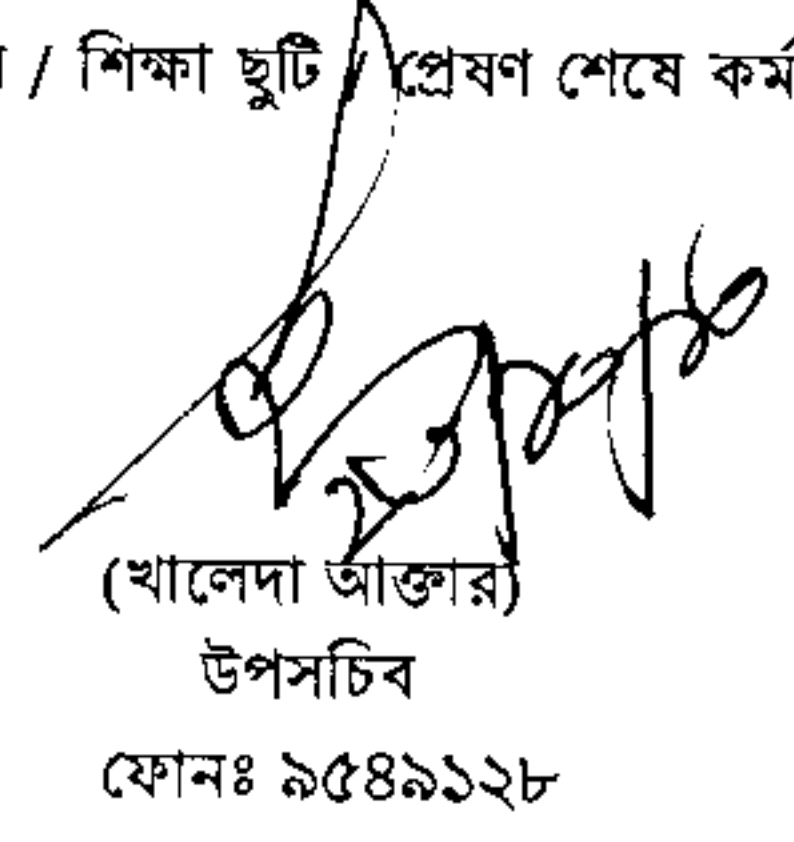 / শিক্ষা ছুটি / প্রেষণ শেষে কর্ম
(খালেদা আক্তার)
উপসচিব
ফোনঃ ৯৫৪৯১২৮